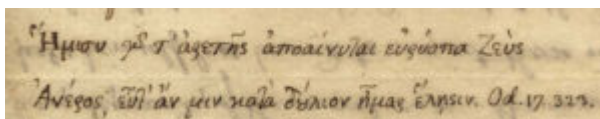 Ἥμισυ γὰρ τ' ἀρετῆς ἀποαίνυται εὐρύοπα Ζεὺς
Ἀνέρος, εὖτ' ἄν μιν κατὰ δούλιον ἦμαρ ἕλησιν. Od. 17. 323.